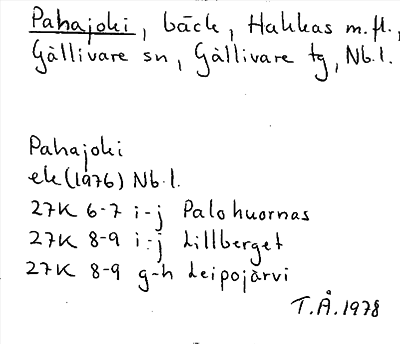 Pahajoki, bäck, Hakkas m.fl.,
Gällivare sn, Gällivare tg, Nb.l.
Pahajoki
ek(1976) Nb.l.
27K 6-7 i-j Palohuornas
27K 8-9 i-j Lillberget
27K 8-9 g-h Leipojärvi
T.Å.1978